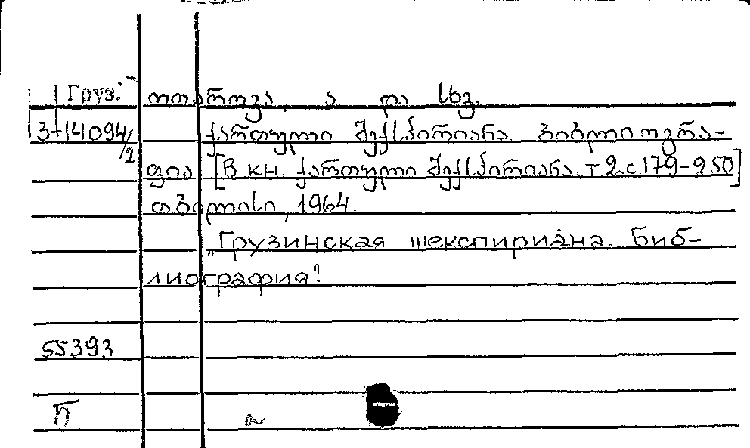 Груз. ოთაროვა, ა და სხვ.
3-14094/2 ქართული შექსპირიანა. ბიბლიოგრა-
ფია [В кн. ქართული შექსპირიანა. т 2. с 179-250]
თბილისი, 1964.
"Грузинская шекспириана. Биб-
лиография"
55393
П